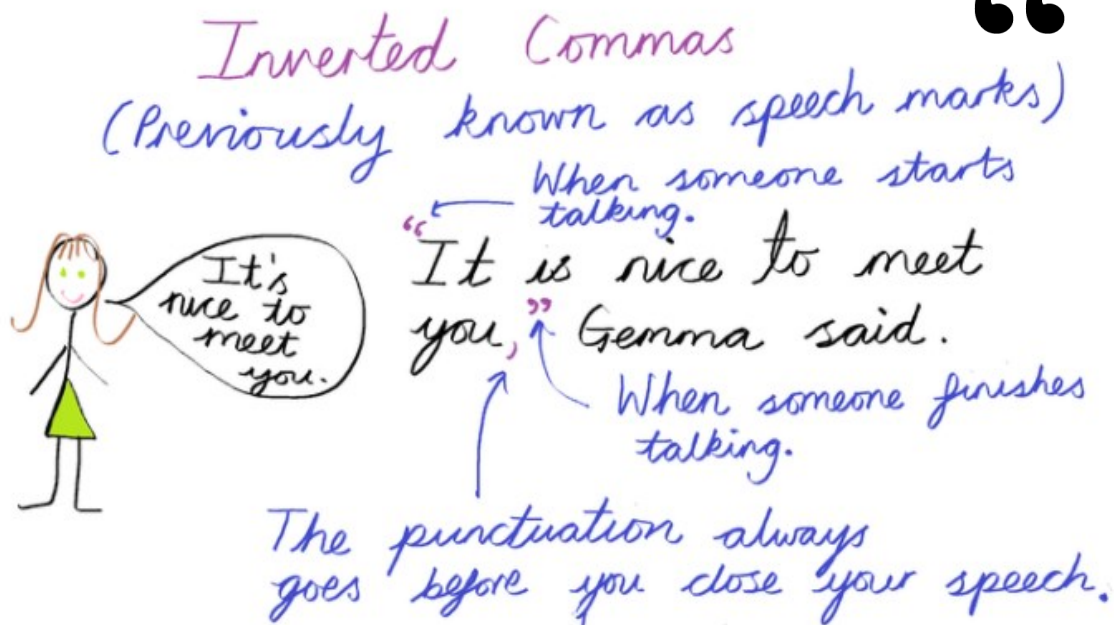 “
Inverted Commas
(Previously known as speech marks)
When someone starts
talking.
It's
nice to
meet
you.
“It is nice to meet
you,” Gemma said.
When someone finishes
talking.
The punctuation always
goes before you close your speech.